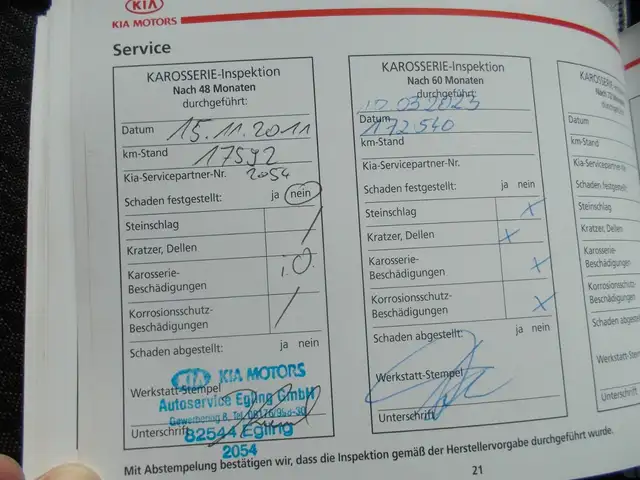 KIA
KIA MOTORS
Service
KAROSSERIE-Inspektion
Nach 48 Monaten
durchgeführt:
Datum 15.11.2011
km-Stand 17592
Kia-Servicepartner-Nr. 2054
Schaden festgestellt: ja nein
Steinschlag
Kratzer, Dellen
Karosserie-
Beschädigungen i.O.
Korrosionsschutz-
Beschädigungen
Schaden abgestellt: ja nein
Werkstatt-Stempel
KIA MOTORS
Autoservice Egling GmbH
Unterschrift
82544 Egling
2054
KAROSSERIE-Inspektion
Nach 60 Monaten
durchgeführt:
Datum 10.03.2023
172540
km-Stand
Kia-Servicepartner-Nr.
Schaden festgestellt: ja nein
Steinschlag x
Kratzer, Dellen x
Karosserie-
Beschädigungen x
Korrosionsschutz-
Beschädigungen x
Schaden abgestellt: ja nein
Werkstatt-Stempel
Unterschrift
Datum
km-Stand
Kia-Servicepartner
Schaden festgestellt
Steinschlag
Kratzer, Dellen
Karosserie-
Beschädigungen
Korrosionsschutz
Beschädigungen
Schaden
Werkstatt-Stem
Unterschrift
Mit Abstempelung bestätigen wir, dass die Inspektion gemäß der Herstellervorgabe durchgeführt wurde.
21